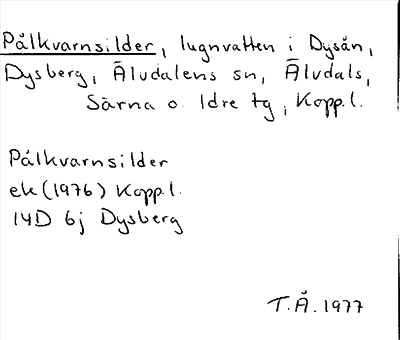 Pålkvarnsilder, lugnvatten i Dysån,
Dysberg, Älvdalens sn, Älvdals,
Särna o. Idre tg, Kopp.l.
Pålkvarnsilder
ek (1976) Kopp.l.
14D 6j Dysberg
T.Å. 1977